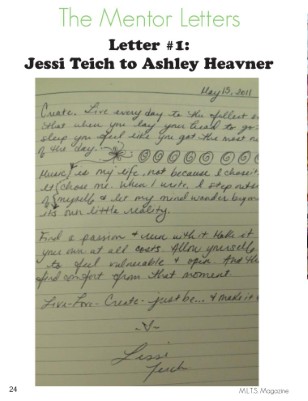 The Mentor Letters
Letter #1:
Jessi Teich to Ashley Heavner
May 15, 2011
Create. Live every day to the fullest so
that when you lay your head to go
sleep you feel like you got the most out
of the day.
Music is my life, not because I chose it
it chose me. When I write, I step outside
of myself & let my mind wander beyond
its own little reality.
Find a passion & run with it. Make it
your own at all costs. Allow yourself
to feel vulnerable & open. And
find comfort from that moment.
Live-Love-Create-just be... & make it
Jessi
Teich
24
MLTS Magazine